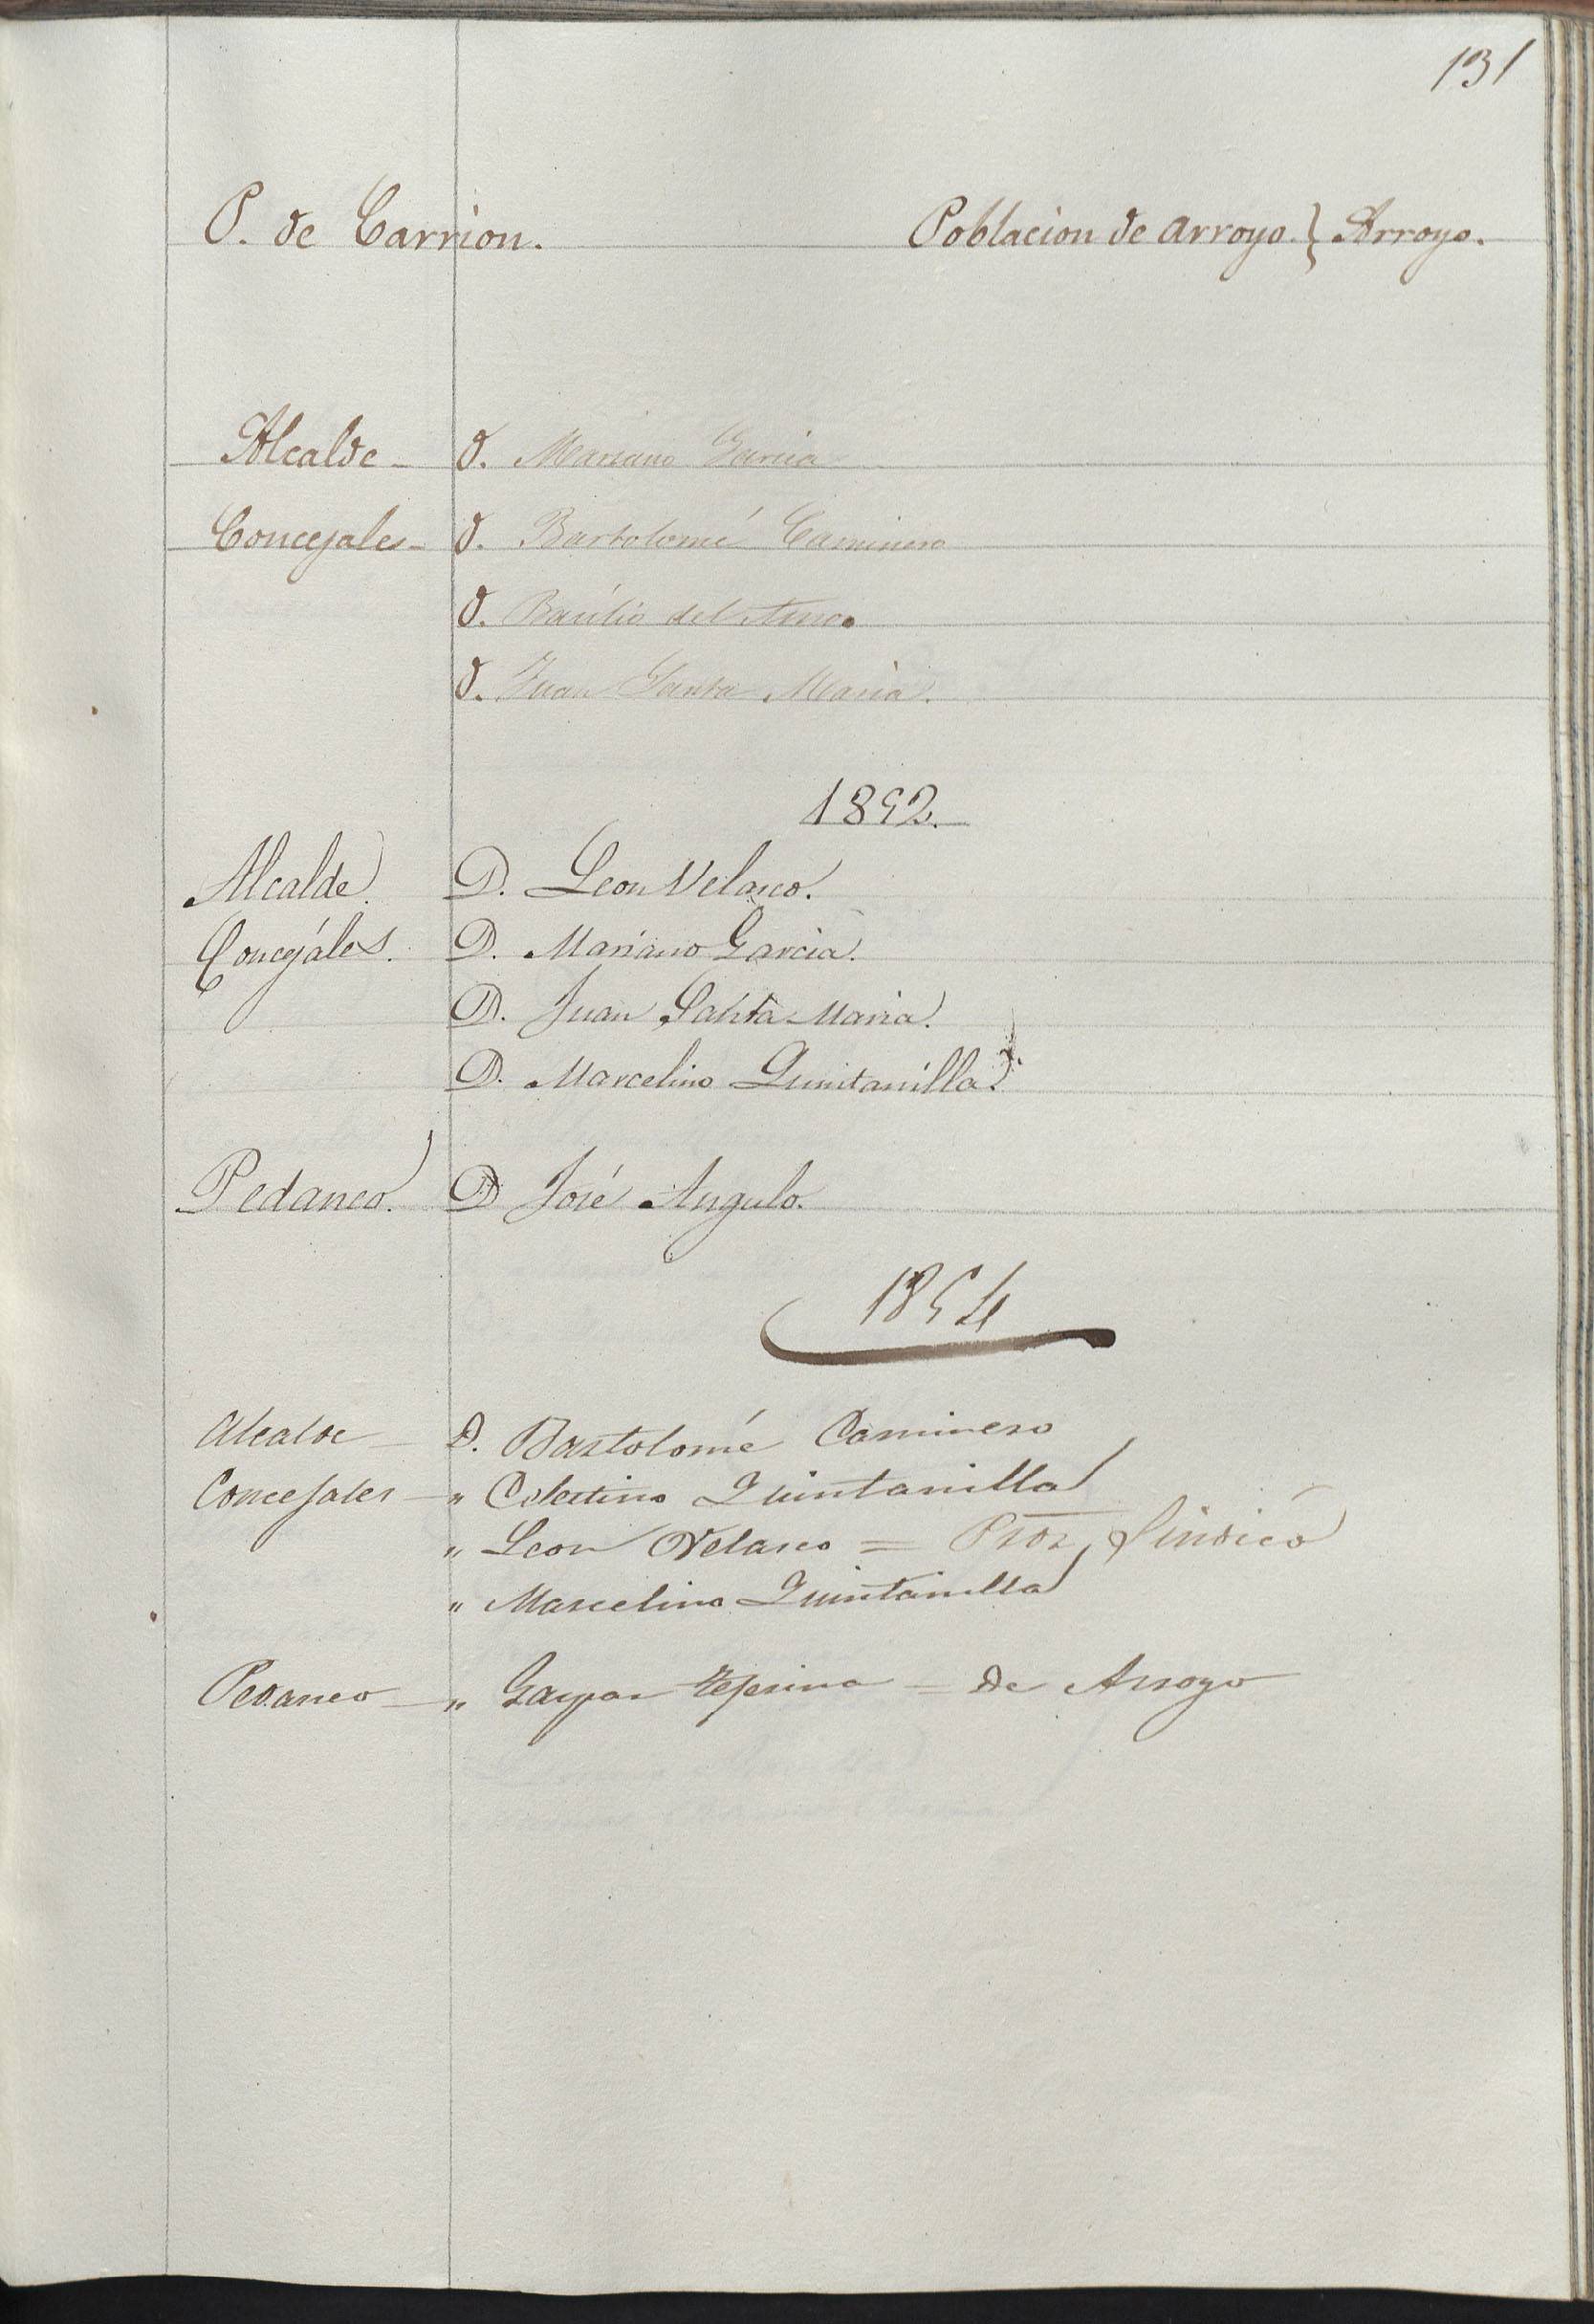 131
P. de Carrion. Poblacion de Arroyo. } Arroyo.
Alcalde - D. Mariano Garcia
Concejales - D. Bartolomé Caminero
D. Basilio del
D. Juan Santa Maria.
1852.
Alcalde. D. Leon Velasco.
Concejáles. D. Mariano Garcia.
D. Juan Santa Maria.
D. Marcelino Quintanilla.
Pedaneo. D José Angulo.
1854
Alcalde - D. Bartolomé Caminero
Concejales - " Celestino Quintanilla
" Leon Velasco = Pror Sindico
" Marcelino Quintanilla
Pedaneo - " Gaspar Tejerina = de Arroyo